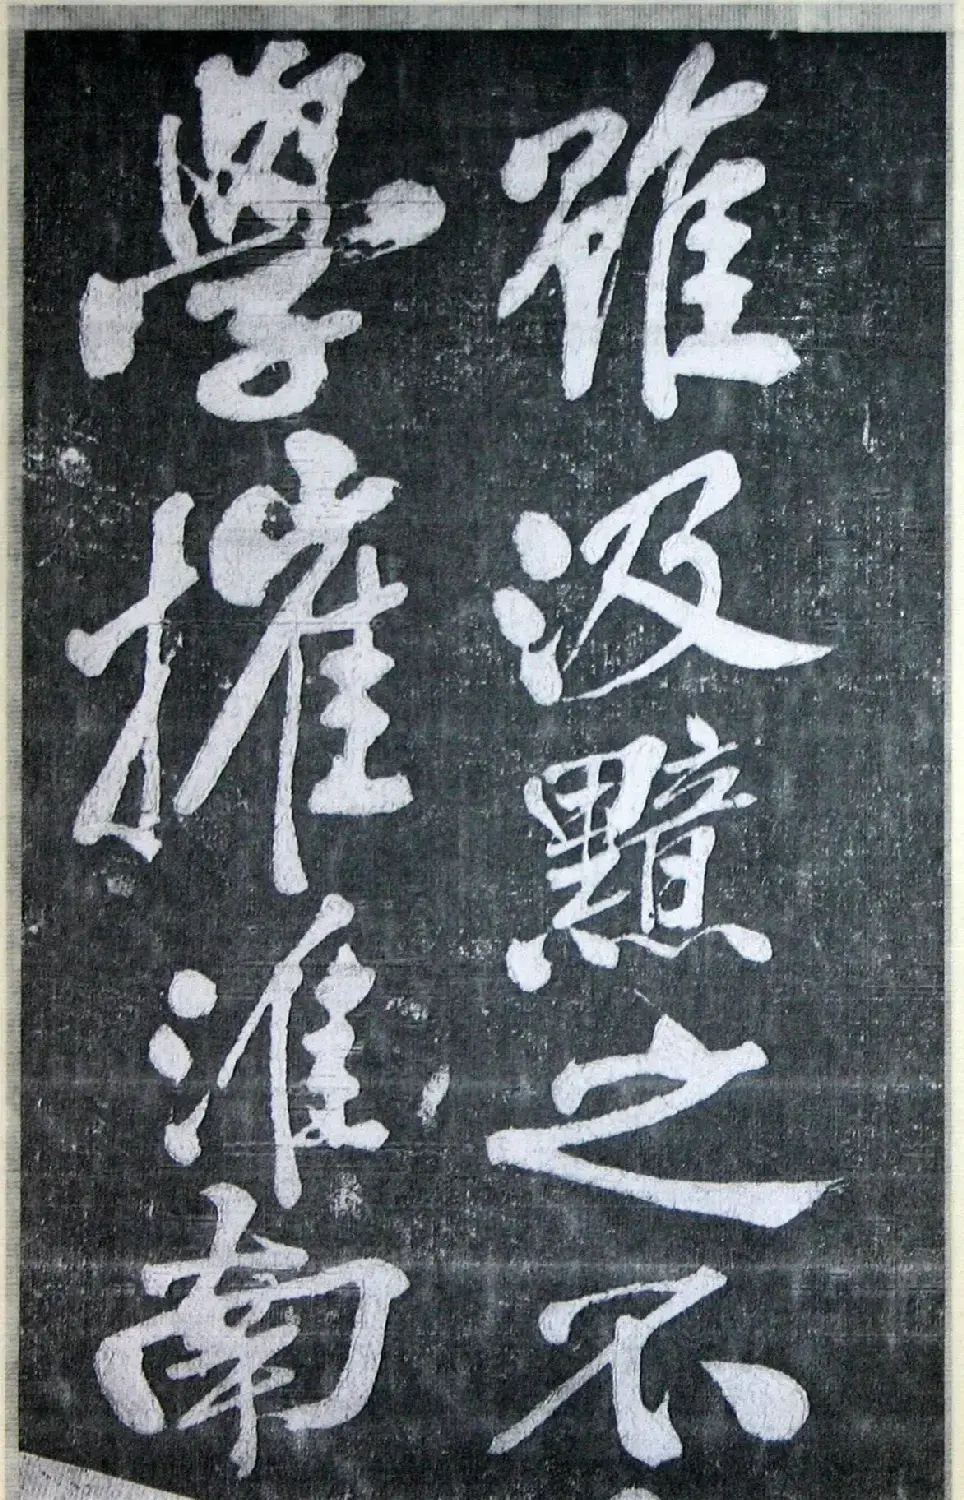 雖汲黯之不
學摧淮南